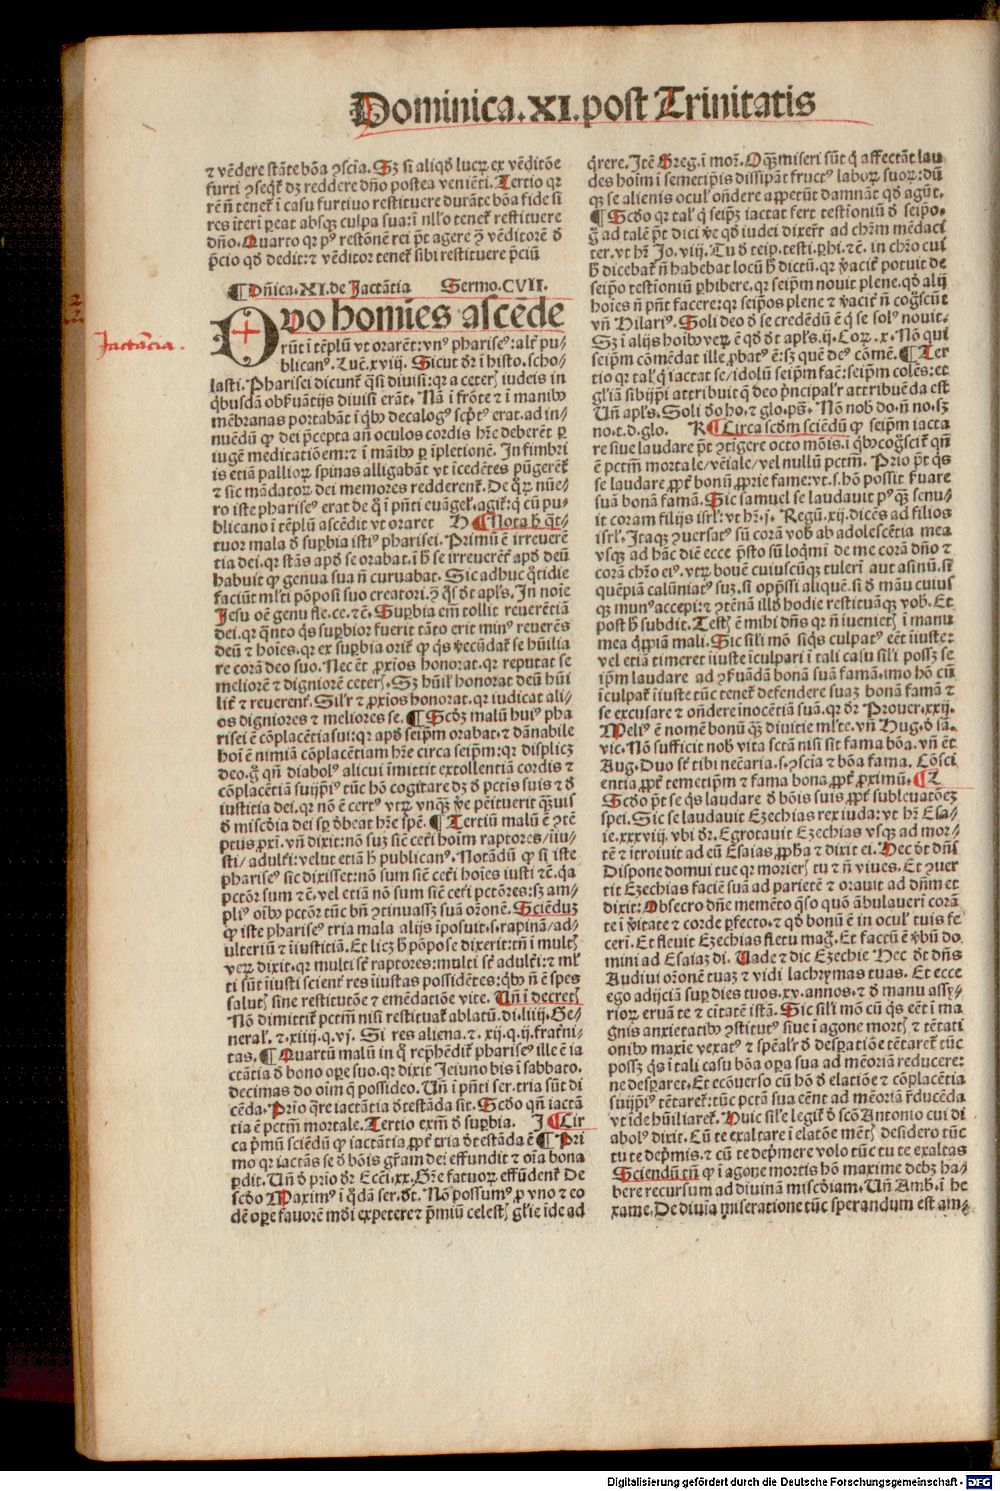 Dominica.XI.post Trinitatis
⁊ vēdere stāte bōa ꝯscīa. Sꝫ si aliqd lucrꝝ ex vēditōe
furti ꝯseqt̄ dꝫ reddere dño postea veniēti. Tertio qꝛ
rē ñ tenet̄ i casu furtiuo restituere durāte bōa fide si
res iteri peat absqꝫ culpa sua: i nllo tenet̄ restituere
dño. Quarto qꝛ pꝰ restōnē rei pt̄ agere ꝯ̄ vēditorē ꝺ̄
p̄cio qd dedit: ⁊ vēditor tenet̄ sibi restituere p̄ciū
¶ Dñica.XI.de Jactātia Sermo.CVII.
Jactācia.
Dvo homīes ascēde
rūt i tēplū vt orarēt: vnꝰ phariseꝰ: alt̄ pu⸗
blicanꝰ. Luc̄. xviij. Sicut dr̄ i histo. scho⸗
lasti. Pharisei dicunt̄ q̄si diuisi: qꝛ a ceteris iudeis in
qbusdā obẜuātijs diuisi erāt. Nā i frōte ⁊ i maniꝰ
mēbranas portabāt i qbꝰ decalogꝰ scptꝰ erat. ad in⸗
nuēdū ꝙ dei p̄cepta añ oculos cordis hr̄e deberēt ꝑ
iugē meditatiōem: ⁊ i māibꝰ ꝑ ipletionē. In fimbri
is etiā pallioꝝ spinas alligabāt vt icedētes pūgerēt̄
⁊ sic mādatoꝝ dei memores redderent̄. De qꝝ nūe⸗
ro iste phariseꝰ erat de q̄ i pn̄ti euāgel. agit̄: q cū pu⸗
blicano i tēplū ascēdit vt oraret H ¶ Nota h̄ qt⸗
tuor mala ꝺ̄ suꝑbia istiꝰ pharisei. Primū ē irreuerē
tia dei. qꝛ stās apd se orabat. i h̄ se irreuerēt̄ apd deū
habuit ꝙ genua sua ñ curuabat. Sic adhuc qtidie
faciūt mlti pōposi suo creatori. ꝯ̄ qd dt apls. In noīe
Jesu oē genu fle. ce. ⁊c̄. Suꝑbia em̄ tollit reuerētiā
dei. qꝛ q̄nto qs suꝑbior fuerit tāto erit minꝰ reuerēs
deū ⁊ hoīes. qꝛ ex suꝑbia orit̄ ꝙ qs verēcūdat̄ se hūilia
re corā deo suo. Nec ēt ꝓxios honorat. qꝛ reputat se
meliorē ⁊ digniorē ceteris. Sꝫ hūil honorat deū hūi
lit̄ ⁊ reuerent̄. Silr ⁊ ꝓxios honorat. qꝛ iudicat ali⸗
os digniores ⁊ meliores se. ¶ Scdꝫ malū huiꝰ pha
risei ē cōplacētia sui: qꝛ apd seipm̄ orabat. ⁊ dānabile
hoī ē nimiā cōplacētiam hr̄e circa seipm̄: qꝛ displicꝫ
deo. g̊ qñ diabolꝰ alicui īmittit extollentiā cordis ⁊
cōplacētiā suiipi̓ tūc hō cogitare dꝫ ꝺ̄ pctis suis ⁊ ꝺ̄
iustitia dei. qꝛ nō ē certꝰ vtꝝ vnqꝫ ve̓ pēituerit q̄uis
ꝺ̄ miscd̓ia dei sꝑ dēbeat hr̄e spē. ¶ Tertiū malū ē ꝯtē
ptus ꝓxi. vñ dixit: nō suꝫ sic cet̄i hoīm raptores/iiu⸗
sti/ adult̄i: velut etiā h̄ publicanꝰ. Notādū ꝙ si iste
phariseꝰ sic dixisset: nō sum sic cet̄i hoīes iusti ⁊c̄. q̄a
pctōr sum ⁊c̄. vel etiā nō sum sic cet̄i pctōres: sꝫ am⸗
pliꝰ oībꝰ pctōr tūc bñ ꝯtinuassꝫ suā or̄onē. Sciēduꝫ
ꝙ iste phariseꝰ tria mala alijs iposuit. s. rapinā/ ad⸗
ulteriū ⁊ iiustitiā. Et licꝫ h̄ pōpose dixerit: tñ i multis
verꝝ dixit. qꝛ multi st̄ raptores: multi st̄ adult̄i: ⁊ ml
ti sūt iiusti scient̄ res iiustas possidētes: qbꝰ ñ ē spes
salutis sine restitutōe ⁊ emēdatiōe vite. Vñ i decretis
Nō dimittit̄ pctm̄ nisi restituat̄ ablatū. di. liiij. Ge⸗
neral. ⁊. xiiij. q. vj. Si res aliena. ⁊. xij. q. ij. frat̄ni⸗
tas. ¶ Quartū malū in q̄ rep̄hēdit̄ phariseꝰ ille ē ia
ctātia ꝺ̄ bono oꝑe suo. qꝛ dixit Jeiuno bis i sabbato.
decimas do oīm q̄ possideo. Vñ i pn̄ti ser. tria sūt di
cēda. Prio q̄re iactātia dtestāda sit. Scdo qñ iactā
tia ē pctm̄ mortale. Tertio exm̄ ꝺ̄ suꝑbia. J ¶ Cir
ca p̄mū sciēdū ꝙ iactātia ꝓpt̄ tria dtestāda ē ¶ Pri
mo qꝛ iactās se ꝺ̄ bōis gr̄am dei effundit ⁊ oīa bona
ꝑdit. Vñ ꝺ̄ prio dr̄ Ecci. xx. Gr̄e fatuoꝝ effūdent̄ De
scdo Maximꝰ i qdā ser. dt. Nō possumꝰ ꝓ vno ⁊ eo
dē oꝑe fauorē mūdi expetere ⁊ p̄miū celestis gl̄ie ide ad
q̄rere. Itē Greg. i mor. O qꝫ miseri sūt q affectāt lau
des hoīm i semetip̄is dissipāt fructꝰ laboꝝ suoꝝ: dū
qꝫ se alienis ocul on̄dere appetūt damnāt qd agūt.
¶ Scdo qꝛ tal q seipꝫ iactat fert testioniū ꝺ̄ seipo.
g̊ ad talē pt̄ dici ve qd iudei dixert̄ ad chrm̄ mēdaci
ter. vt hr̄ Jo. viij. Tu ꝺ̄ teip. testi. ꝑhi. ⁊c̄. in chro cui
h̄ dicebat̄ ñ habebat locū h̄ dictū. qꝛ vacit̄ potuit de
seip̄o testioniū ꝑhibere. qꝛ seipm̄ nouit plene. qd alij
hoīes ñ pn̄t facere: qꝛ seipos plene ⁊ vacit̄ ñ cogscūt
vñ Hilariꝰ. Soli deo ꝺ̄ se credēdū ē q̄ se solꝰ nouit.
Sꝫ i alijs hoībꝰ verꝝ ē qd dt apls. ij. Cor. x. Nō qui
seipm̄ cōmēdat ille ꝓbatꝰ ē: sꝫ quē deꝰ cōmē. ¶ Ter
tio qꝛ tal q iactat se/ idolū seipm̄ faē: seipm̄ colēs: et
gl̄iā sibiip̄i attribuit q̄ deo p̄ncipalr attribuēda est
Vñ apls. Soli do ho. ⁊ glo. ps. Nō nob do. ñ no. sꝫ
no. t. d. glo. K ¶ Circa scdm sciēdū ꝙ seipm̄ iacta
re siue laudare pt̄ ꝯtigere octo mōis. i qbꝰ cogscit̄ qñ
ē pctm̄ mortale/ vēiale/ vel nullū pctm̄. Prio pt̄ qs
se laudare ꝓpt̄ bonū ꝓprie fame: vt. s. hō possit ẜuare
suā bonā famā. Sic samuel se laudauit pꝰqꝫ senu⸗
it coram filijs isrl: vt hr̄. j. Regū. xij. dicēs ad filios
isrl. Itaqꝫ ꝯuersatꝰ sū corā vob ab adolescētia mea
vsqꝫ ad hāc diē ecce p̄sto sū loqmi de me corā dño ⁊
corā chro eiꝰ. vtꝝ bouē cuiuscūqꝫ tulerī aut asinū. si
quēpiā calūniatꝰ suꝫ. si opp̄ssi aliquē. si ꝺ̄ māu cuius
qꝫ munꝰ accepi: ⁊ ꝯtēnā illd hodie restituāqꝫ vob. Et
post h̄ subdit. Testis ē mihi dñs qꝛ ñ iuenietis i manu
mea qppiā mali. Sic sili mō siqs culpatꝰ eēt iiuste:
vel etiā timeret iiuste iculpari i tali casu sili possꝫ se
ipm̄ laudare ad ꝯẜuādā bonā suā famā. imo hō cū
iculpat̄ iiuste tūc tenet̄ defendere suaꝫ bonā famā ⁊
se excusare ⁊ on̄dere inocētiā suā. qꝛ dr̄ Prouer. xxij.
Meliꝰ ē nomē bonū qꝫ diuitie mlte. vñ Hug. ꝺ̄ sā.
vic. Nō sufficit nob vita sctā nisi sit fama bōa. vñ ēt
Aug. Duo st̄ tibi necāria. s. ꝯscia ⁊ bōa fama. Cōsci
entia ꝓpt̄ temetipm̄ ⁊ fama bona ꝓpt̄ ꝓximū. ¶ L
Scdo pt̄ se qs laudare ꝺ̄ bōis suis ꝓpt̄ subleuatōeꝫ
spei. Sic se laudauit Ezechias rex iuda: vt hr̄ Esa⸗
ie. xxxviij. vbi dr̄. Egrotauit Ezechias vsqꝫ ad mor⸗
tē ⁊ itroiuit ad eū Esaias ꝓpha ⁊ dixit ei. Hec dt dñs
Dispone domui tue qꝛ morieris tu ⁊ ñ viues. Et ꝯuer
tit Ezechias faciē suā ad parietē ⁊ orauit ad dñm et
dixit: Obsecro dñe memēto qso quō ābulauerī corā
te i vitate ⁊ corde ꝑfecto. ⁊ qd bonū ē in ocul tuis fe
ceri. Et fleuit Ezechias fletu mag. Et factū ē vbū do
mini ad Esaiaꝫ di. Vade ⁊ dic Ezechie Hec dt dñs
Audiui or̄onē tuaꝫ ⁊ vidi lachrymas tuas. Et ecce
ego adijciā suꝑ dies tuos. xv. annos. ⁊ ꝺ̄ manu assy⸗
rioꝝ eruā te ⁊ ciītatē istā. Sic sili mō cū qs eēt i ma
gnis anxietatibꝰ ꝯstitutꝰ siue i agone mortis ⁊ tētati
onibꝰ maxie vexatꝰ ⁊ spēalr ꝺ̄ desꝑatiōe tētaret̄ tūc
possꝫ qs i tali casu bōa oꝑa sua ad mēoriā reducere:
ne desꝑaret. Et ecōuerso cū hō ꝺ̄ elatiōe ⁊ cōplacētia
suiip̄i̓ tētaret̄: tūc pctā sua cēnt ad mēoriā rducēda
vt ide hūiliaret̄. Huic sile legit̄ ꝺ̄ scō Antonio cui di
abolꝰ dixit. Cū te exaltare i elatōe mētis desidero tūc
tu te dep̄mis. ⁊ cū te dep̄mere volo tūc tu te exaltas
Sciendū tñ ꝙ i agone mortis hō maxime debꝫ ha⸗
bere recursum ad diuinā miscd̓iam. Vñ Amb. i he
xame. De diuia miseratione tūc sperandum est am⸗
Digitalisierung gefördert durch die Deutsche Forschungsgemeinschaft - DFG